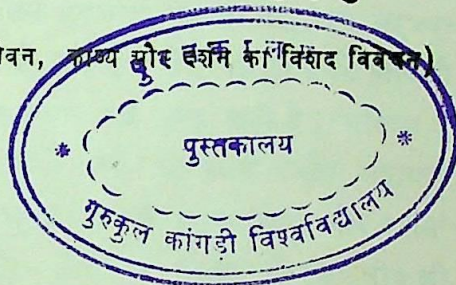 वन, काव्य और दर्शन का विशद विवेचन)
पुस्तकालय
गुरुकुल कांगड़ी विश्वविद्यालय